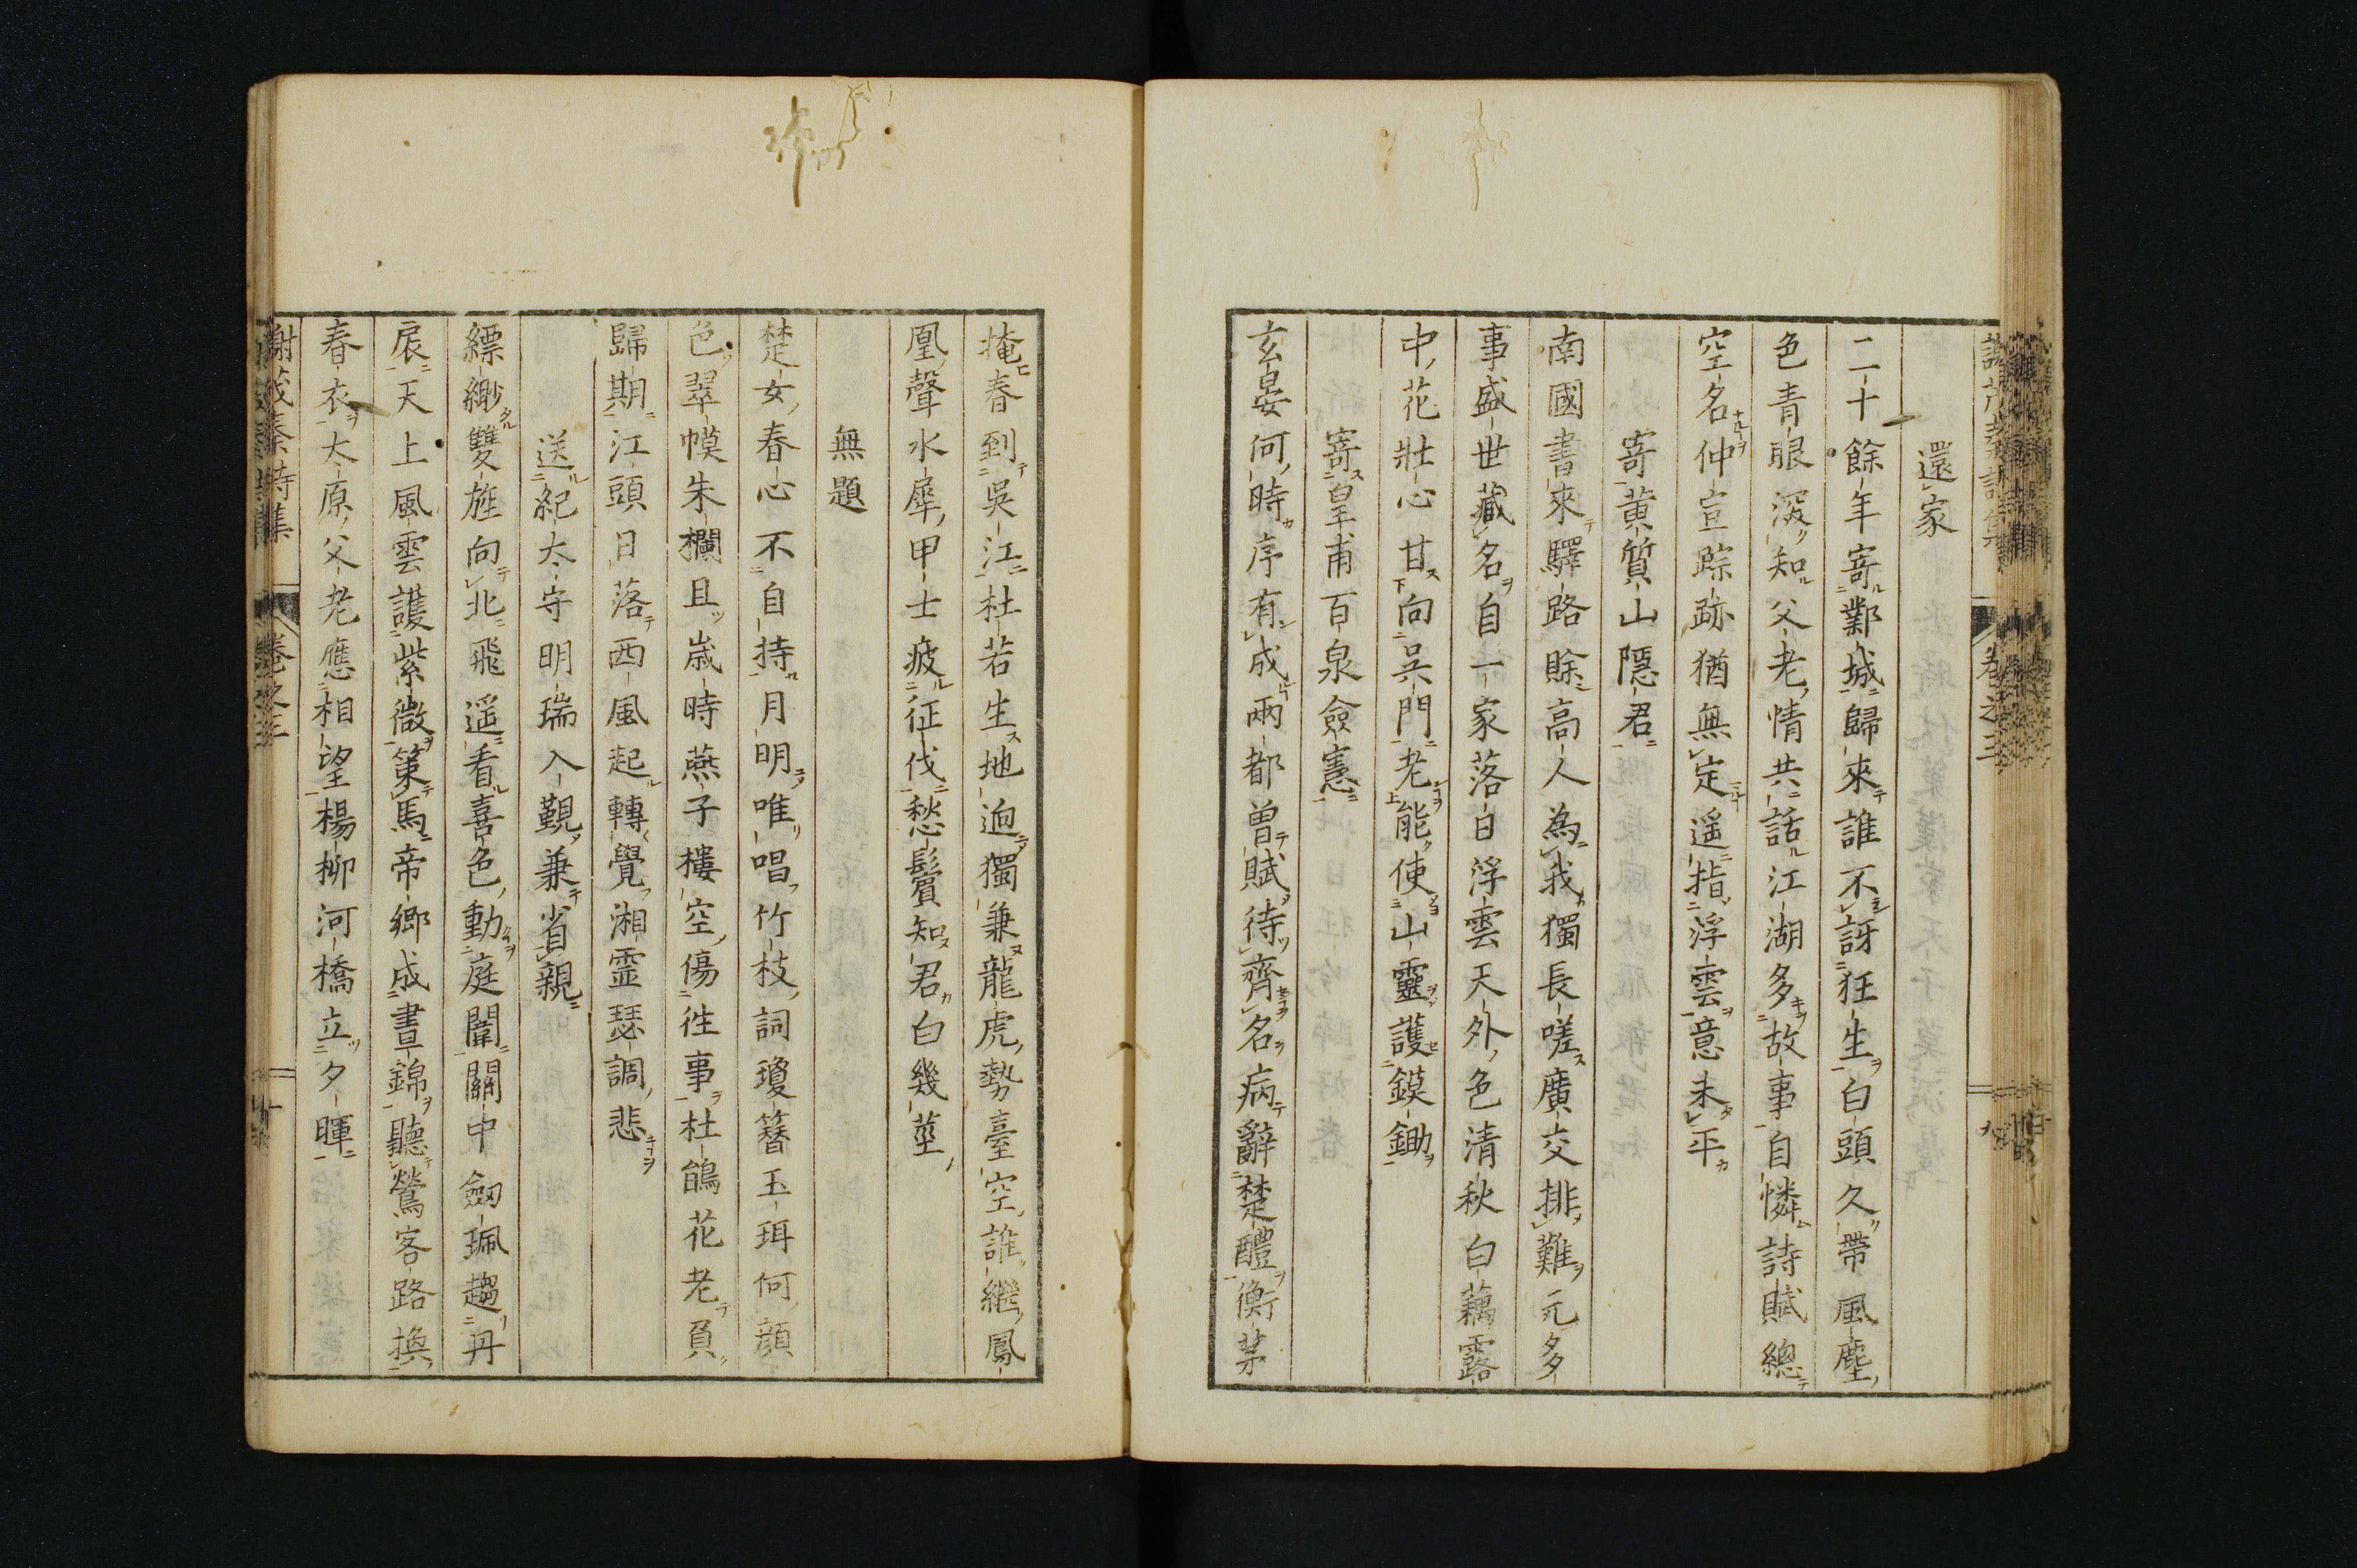 還家
二十餘年寄鄴城歸來誰不訝狂生白頭久帶風塵
色青眼深知父老情共話江湖多故事自憐詩賦總
空名仲宣踪跡猶無定遥指浮雲意未平
寄黄質山隱君
南國書來驛路賖高人為我獨長嗟廣交排難元多
事盛世藏名自一家落日浮雲天外色清秋白藕露
中花壯心甘向吳門老能使山靈護鏌鋤
寄皇甫百泉僉憲
玄晏何時序有成兩都曽賦待齊名病辭楚醴衡茅
掩春到吳江杜若生地迥獨兼龍虎勢臺空誰繼鳳
凰聲水犀甲士疲征伐愁鬢知君白幾莖
無題
楚女春心不自持月明唯唱竹枝詞瓊簪玉珥何顔
色翠幙朱欄且歳時燕子樓空傷徃事杜鵑花老負
歸期江頭日落西風起轉覺湘霊瑟調悲
送紀太守明瑞入覲兼省親
縹緲雙旌向北飛遥看喜色動庭闈關中劔珮趨丹
扆天上風雲護紫微策馬帝郷成晝錦聽鶯客路換
春衣大原父老應相望楊柳河橋立夕暉
謝茂秦詩集 卷之三